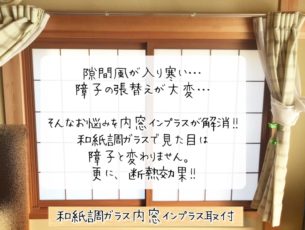 隙間風が入り寒い…
障子の張替えが大変…
そんなお悩みを内窓インプラスが解消!!
和紙調ガラスで見た目は
障子と変わりません。
更に、断熱効果!!
和紙調ガラス内窓インプラス取付